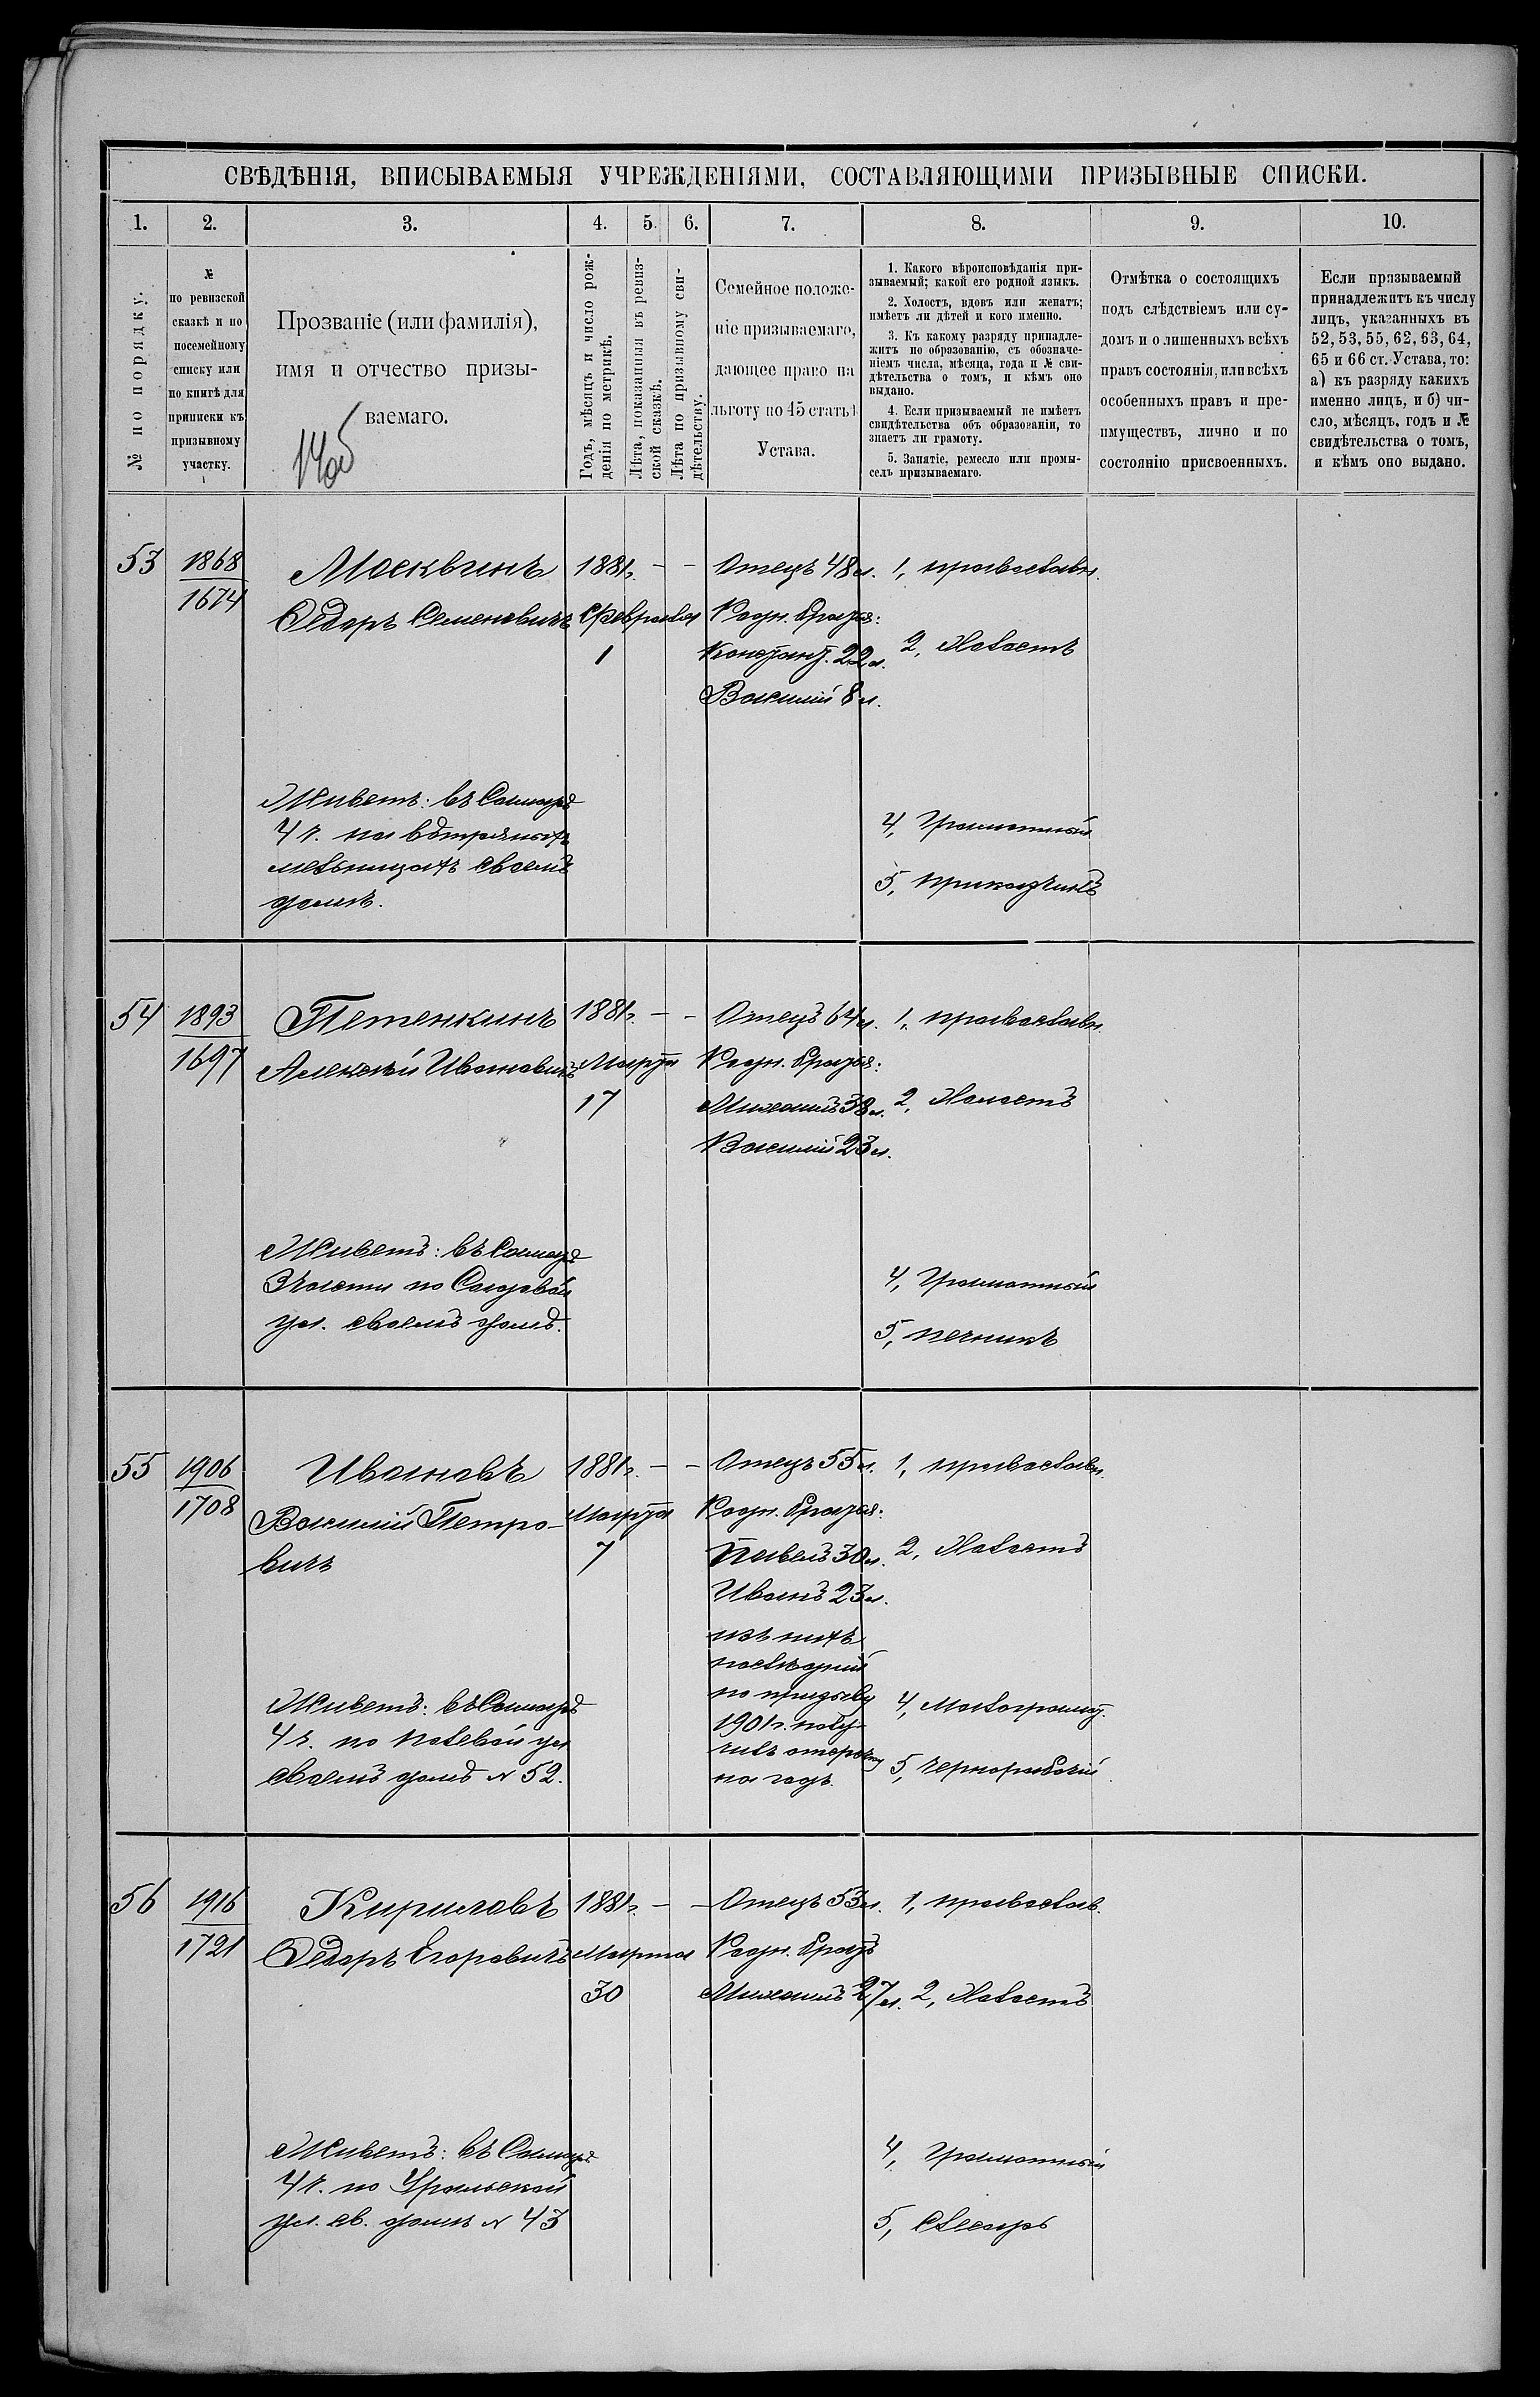 СВѢДѢНІЯ, ВПИСЫВАЕМЫЯ УЧРЕЖДЕНІЯМИ, СОСТАВЛЯЮЩИМИ ПРИЗЫВНЫЕ СПИСКИ.
1. 2. 3. 4. 5. 6. 7. 8. 9. 10.
№ по порядку.
№
по ревизской
сказкѣ и по
посемейному
списку или
по книгѣ для
приписки къ
призывному
участку.
Прозваніе (или фамилія),
имя и отчество призы-
ваемаго.
Годъ, мѣсяцъ и число рож-
денія по метрикѣ.
Лѣта, показанныя въ ревиз-
ской сказкѣ.
Лѣта по призывному сви-
дѣтельству.
Семейное положе-
ніе призываемаго,
дающее право на
льготу по 45 статьѣ
Устава.
1. Какого вѣроисповѣданія при-
зываемый; какой его родной языкъ.
2. Холостъ, вдовъ или женатъ;
имѣетъ ли дѣтей и кого именно.
3. Къ какому разряду принадле-
житъ по образованію, съ обозначе-
ніемъ числа, мѣсяца, года и № сви-
дѣтельства о томъ, и кѣмъ оно
выдано.
4. Если призываемый не имѣетъ
свидѣтельства объ образованіи, то
знаетъ ли грамоту.
5. Занятіе, ремесло или промы-
селъ призываемаго.
Отмѣтка о состоящихъ
подъ слѣдствіемъ или су-
домъ и о лишенныхъ всѣхъ
правъ состоянія, или всѣхъ
особенныхъ правъ и пре-
имуществъ, лично и по
состоянію присвоенныхъ.
Если призываемый
принадлежитъ къ числу
лицъ, указанныхъ въ
52, 53, 55, 62, 63, 64,
65 и 66 ст. Устава, то:
а) къ разряду какихъ
именно лицъ, и б) чи-
сло, мѣсяцъ, годъ и №
свидѣтельства о томъ,
и кѣмъ оно выдано.
53
1868
1674
Москвинъ
Ѳедоръ Семеновичъ
Живетъ: въ Самарѣ
4 ч. на вѣтряныхъ
мельницахъ своемъ
домѣ.
1881 г. — —
Февраля
1
Отецъ 48 л.
Родн. братья:
Констант. 22 л.
Василій 8 л.
1, православн.
2, Холостъ
4, Грамотный
5, приказчикъ
54
1893
1697
Петенкинъ
Алексѣй Ивановичъ
Живетъ: въ Самарѣ
3 части по Садовой
ул. своемъ домѣ.
1881 г. — —
Марта
17
Отецъ 64 л.
Родн. братья:
Михаилъ 38 л.
Василій 23 л.
1, православн.
2, Холостъ
4, Грамотный
5, печникъ
55
1906
1708
Ивановъ
Василій Петро-
вичъ
Живетъ: въ Самарѣ
4 ч. по Полевой ул
своемъ домѣ № 52.
1881 г. — —
Марта
7
Отецъ 55 л.
Родн. братья:
Павелъ 30 л.
Иванъ 23 л.
изъ нихъ
послѣдній
по призыву
1901 г. полу-
чилъ отсрочку
на годъ.
1, православн.
2, Холостъ
4, Малограмот.
5, чернорабочій
56
1916
1721
Кириловъ
Ѳедоръ Егоровичъ
Живетъ: въ Самарѣ
4 ч. по Уральской
ул. св. домѣ № 43
1881 г. — —
Марта
30
Отецъ 53 л.
Родн. братъ
Михаилъ 27 л.
1, православ.
2, Холостъ
4, Грамотный
5, слесарь